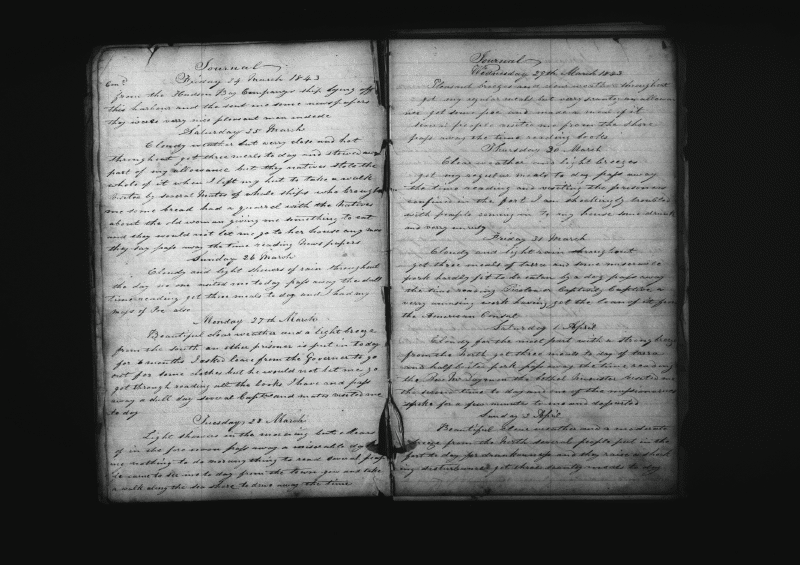 Journal
Friday 24 March 1843
From the Hudson Bay Companys ship lying off
this harbor and the sent me some newspapers
they were very nice pleasant men indeed
Saturday 25 March
Cloudy weather but very close and hot
throughout got three meals to day and stowed away
part of my allowance but they natives stole the
whole of it when I left my hut to take a walk
visited by several Mates of whale ships who brought
me some bread had a quarrel with the Natives
about the old woman giving me something to eat
and they would not let me go to her house any more
they say pass away the time reading News papers
Sunday 26 March
Cloudy and light showers of rain throughout
the day no one visited me to day pass away the dull
time reading got three meals to day and I had my
mess of Poe also
Monday 27th March
Beautiful clear weather and a light breeze
from the south an other prisoner is put in to day
for 6 months I asked leave from the Governor to go
out for some clothes but he would not let me go
got through reading all the books I have and pass
away a dull day several Capts and mates visited me
to day
Tuesday 28 March
Light showers in the morning but clears
off in the fore noon pass away a miserable day
nothing to do nor any thing to read several people
came to see me to day from the town got and take
a walk along the sea shore to drive away the time
Journal
Wednesday 29th March 1843
Pleasant breezes and clear weather throughout
got my regular meals but very scanty allowance
got some poe and made a meal of it
several people visited me from the shore
pass away the time reading books
Thursday 30 March
Clear weather and light breezes
got my regular meals to day pass away
the time reading and visiting the prisoners
confined in the fort I am shockingly troubled
with people coming in to my house some drunk
and very unruly
Friday 31 March
Cloudy and light rain throughout
got three meals of tarra and some miserable
pork hardly fit to be eaten by a dog pass away
the time reading Captive a
very amusing work having got the loan of it from
the American Consul
Saturday 1 April
Cloudy for the most part with a strong breeze
from the North got three meals to day of tarra
and half boiled pork pass away the time reading
the Revd Mr the Bethel Minister visited me
the second time to day and one of the missionaries
spoke for a few minutes to me and departed
Sunday 2 April
Beautiful clear weather and a moderate
breeze from the North several people put in the
fort to day for drunkenness and they raise a shock
ing disturbance got three scanty meals to day